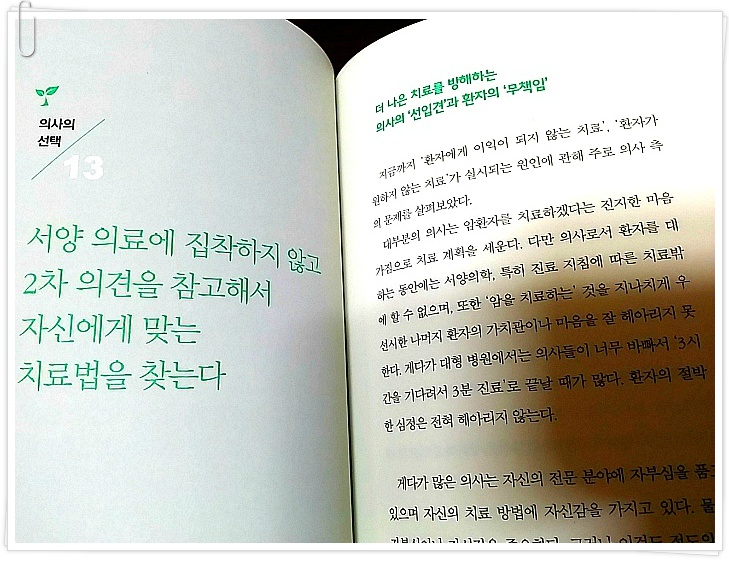 의사의
선택
13
서양 의료에 집착하지 않고
2차 의견을 참고해서
자신에게 맞는
치료법을 찾는다
더 나은 치료를 방해하는
의사의 '선입견'과 환자의 '무책임'
지금까지 '환자에게 이익이 되지 않는 치료', '환자가
원하지 않는 치료'가 실시되는 원인에 관해 주로 의사 측
의 문제를 살펴보았다.
대부분의 의사는 암환자를 치료하겠다는 진지한 마음
가짐으로 치료 계획을 세운다. 다만 의사로서 환자를 대
하는 동안에는 서양의학, 특히 진료 지침에 따른 치료밖
에 할 수 없으며, 또한 '암을 치료하는' 것을 지나치게 우
선시한 나머지 환자의 가치관이나 마음을 잘 헤아리지 못
한다. 게다가 대형 병원에서는 의사들이 너무 바빠서 '3시
간을 기다려서 3분 진료'로 끝날 때가 많다. 환자의 절박
한 심정은 전혀 헤아리지 않는다.
게다가 많은 의사는 자신의 전문 분야에 자부심을 품고
있으며 자신의 치료 방법에 자신감을 가지고 있다. 물